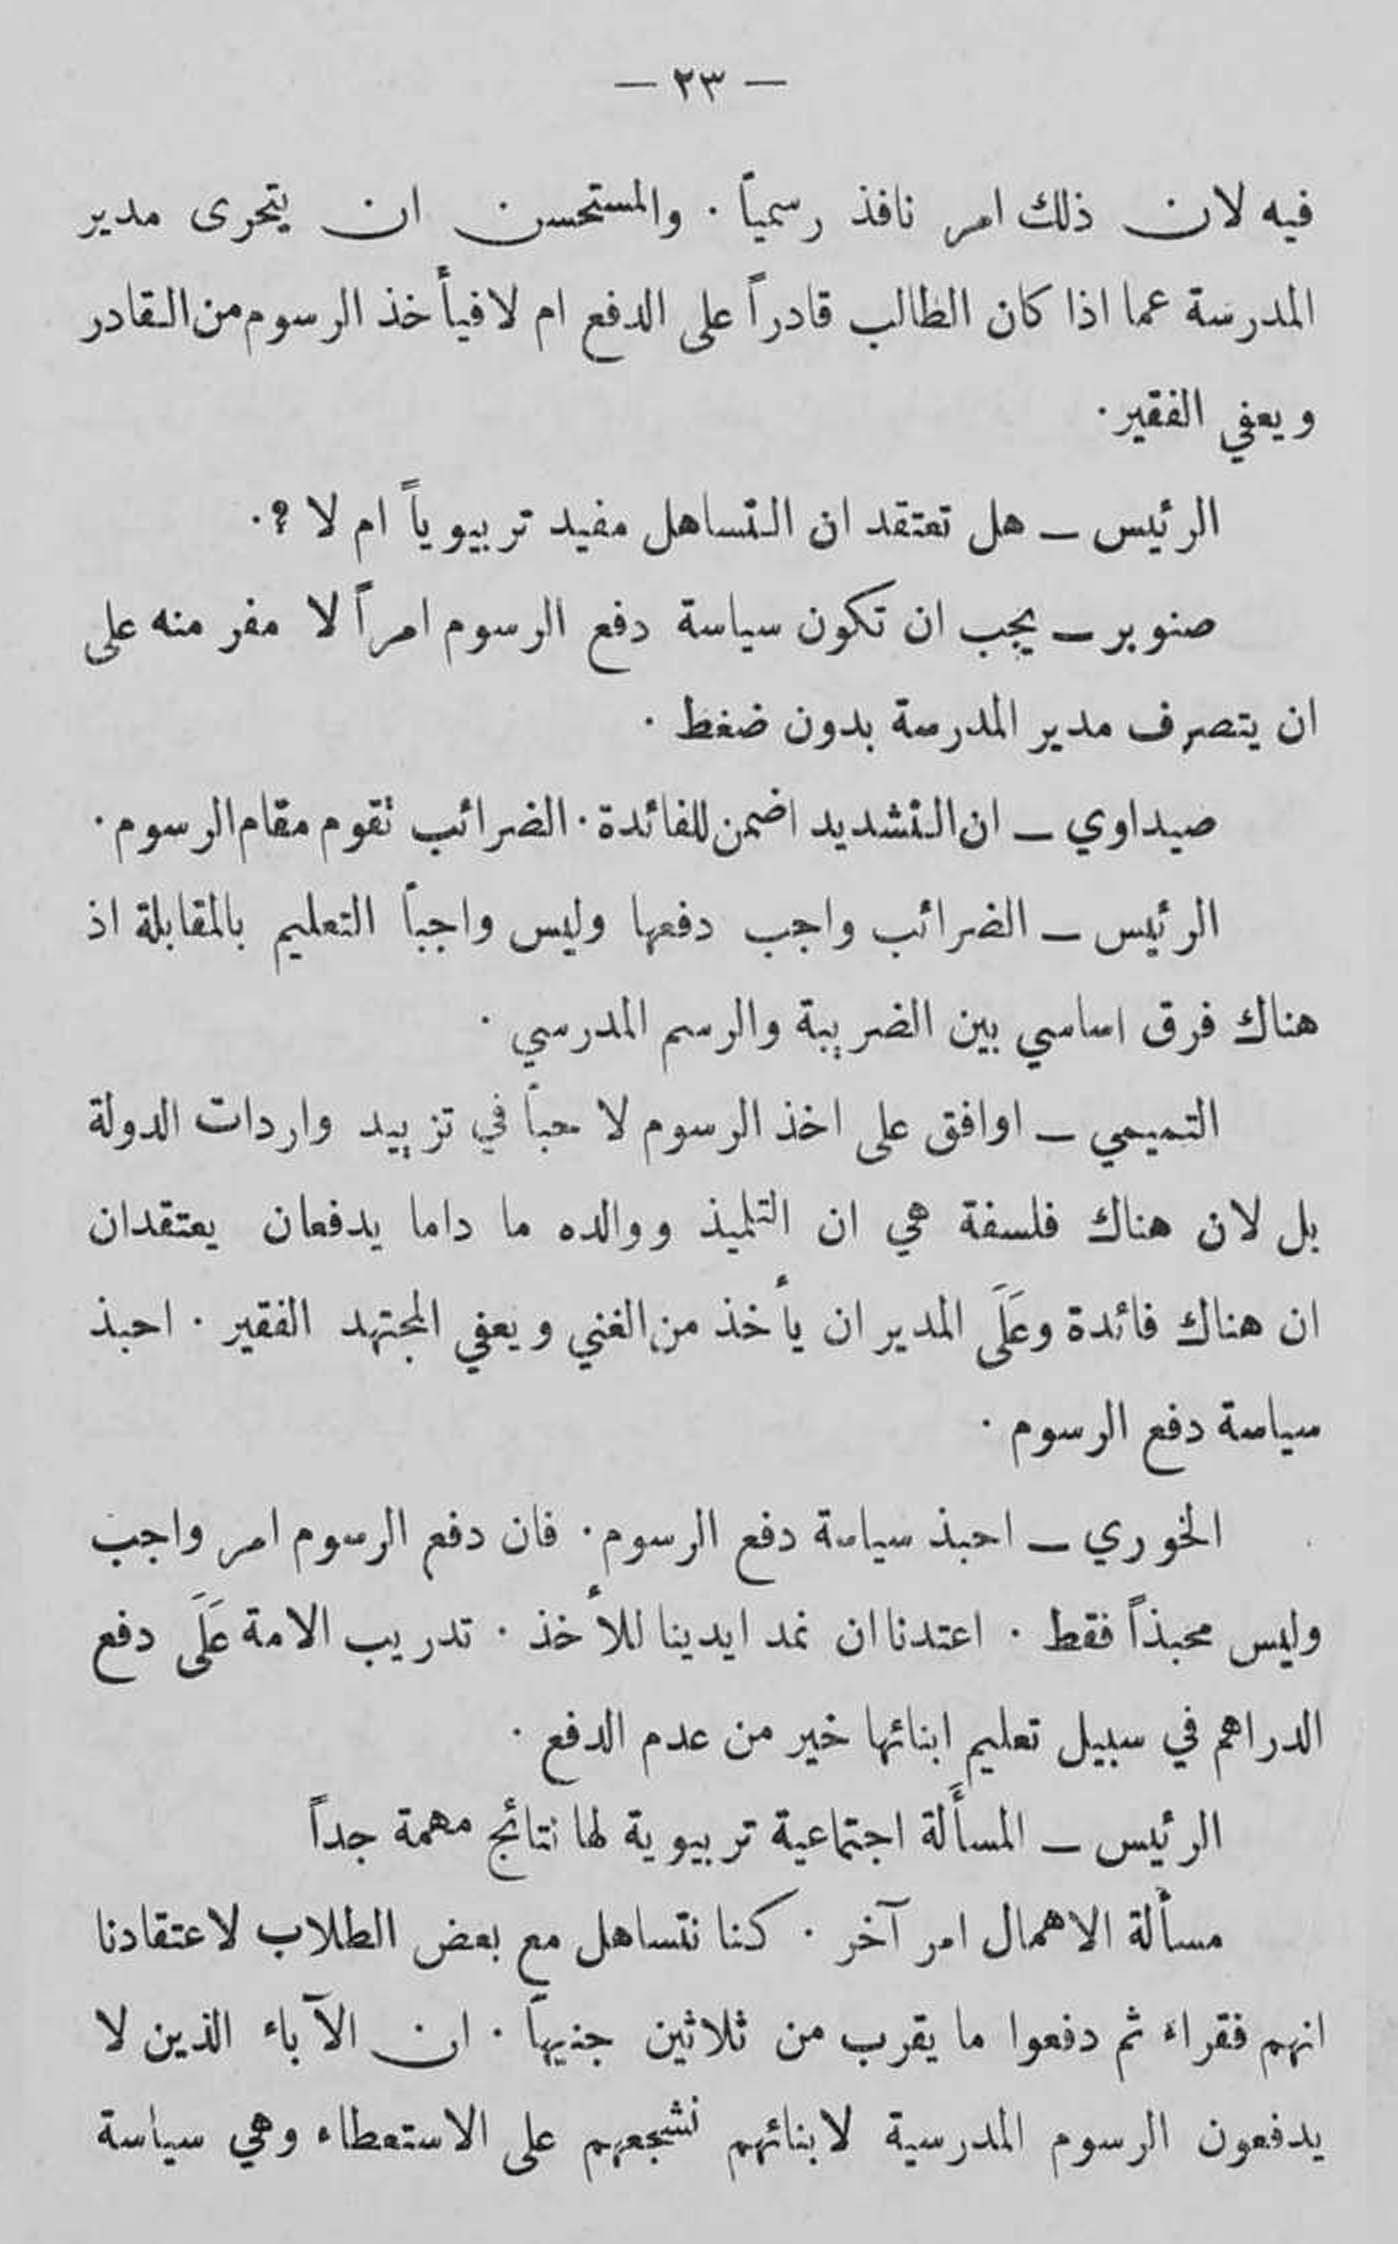 — ٢٣ —
فيه لان ذلك امر نافذ رسمياً . والمستحسن ان يتحرى مدير
المدرسة عما اذا كان الطالب قادراً على الدفع ام لا فيأخذ الرسوم من القادر
ويعفي الفقير .
الرئيس – هل تعتقد ان التساهل مفيد تربيوياً ام لا ؟ .
صنوبر – يجب ان تكون سياسة دفع الرسوم امراً لا مفر منه على
ان يتصرف مدير المدرسة بدون ضغط .
صيداوي – ان التشديد اضمن للفائدة . الضرائب تقوم مقام الرسوم .
الرئيس – الضرائب واجب دفعها وليس واجباً التعليم بالمقابلة اذ
هناك فرق اساسي بين الضريبة والرسم المدرسي .
التميمي – اوافق على اخذ الرسوم لا حباً في تزييد واردات الدولة
بل لان هناك فلسفة هي ان التلميذ ووالده ما داما يدفعان يعتقدان
ان هناك فائدة وعَلَى المدير ان يأخذ من الغني ويعفي المجتهد الفقير . احبذ
سياسة دفع الرسوم .
الخوري – احبذ سياسة دفع الرسوم . فان دفع الرسوم امر واجب
وليس محبذاً فقط . اعتدنا ان نمد ايدينا للأخذ . تدريب الامة عَلَى دفع
الدراهم في سبيل تعليم ابنائها خير من عدم الدفع .
الرئيس – المسأَلة اجتماعية تربيوية لها نتائج مهمة جداً
مسألة الاهمال امر آخر . كنا نتساهل مع بعض الطلاب لاعتقادنا
انهم فقراء ثم دفعوا ما يقرب من ثلاثين جنيهاً . ان الآباء الذين لا
يدفعون الرسوم المدرسية لابنائهم نشجعهم على الاستعطاء وهي سياسة